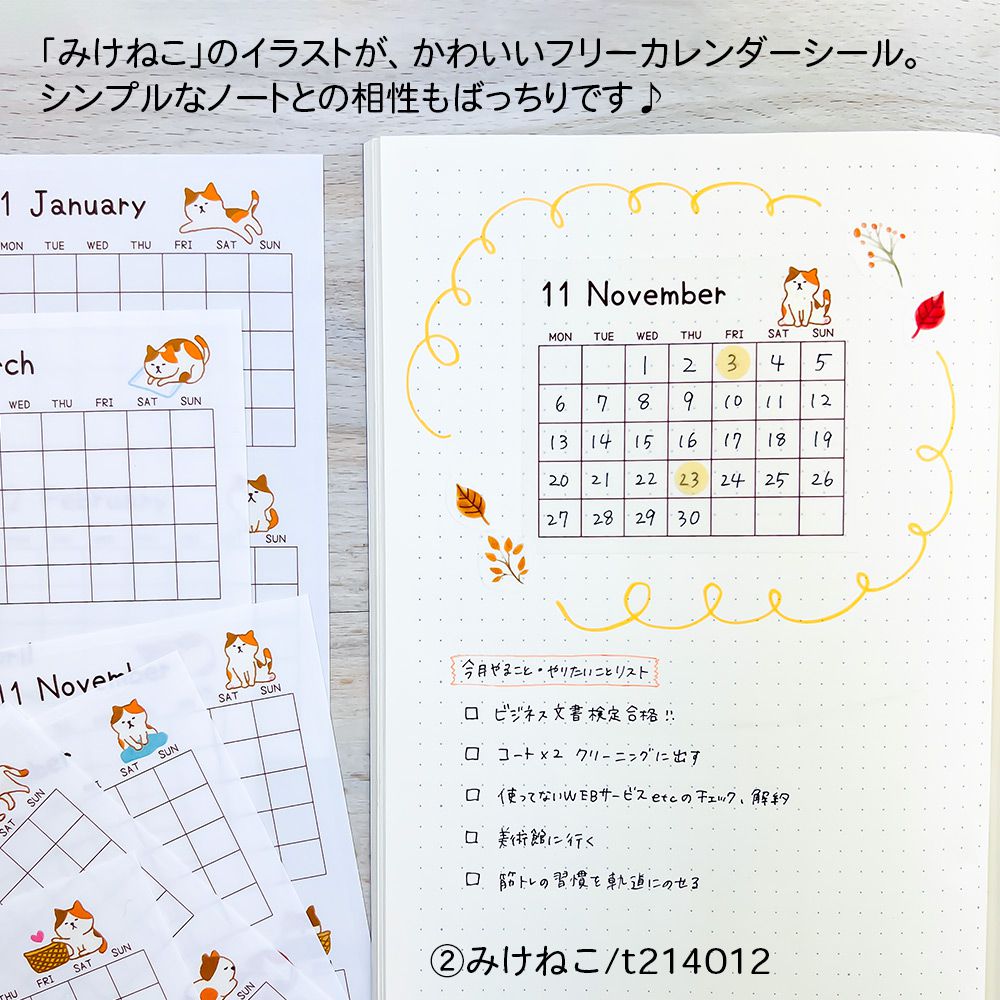 「みけねこ」のイラストが、かわいいフリーカレンダーシール。
シンプルなノートとの相性もばっちりです♪
1 January
MON TUE WED THU FRI SAT SUN
rch
WED THU FRI SAT SUN
SUN
11 November
SAT SUN
SAT SUN
SAT SUN
FRI SAT SUN
11 November
MON TUE WED THU FRI SAT SUN
1 2 3 4 5
6 7 8 9 10 11 12
13 14 15 16 17 18 19
20 21 22 23 24 25 26
27 28 29 30
今月やること・やりたいことリスト
□ ビジネス文書検定合格!!
□ コート×2 クリーニングに出す
□ 使ってないWEBサービスetcのチェック、解約
□ 美術館に行く
□ 筋トレの習慣を軌道にのせる
②みけねこ/t214012